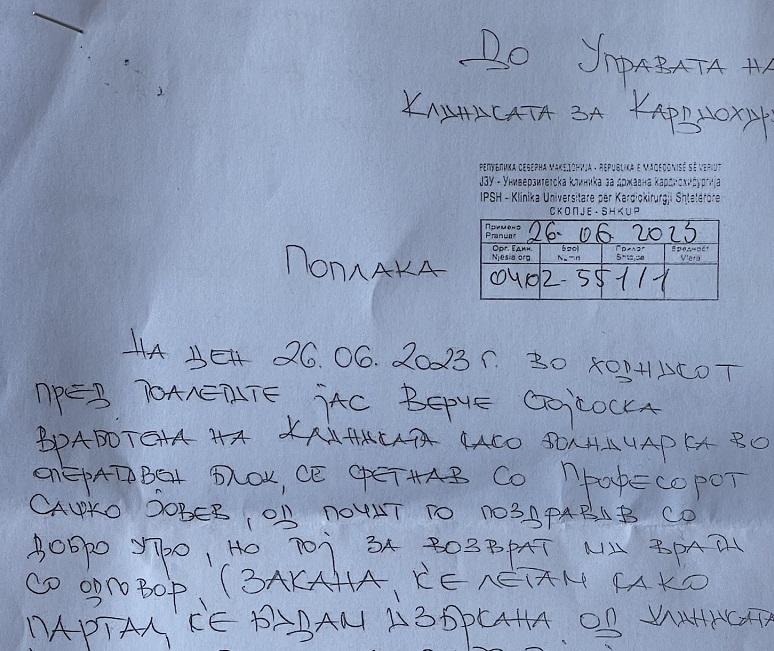 До Управата на
Клиниката за Кардиохир
РЕПУБЛИКА СЕВЕРНА МАКЕДОНИЈА - REPUBLIKA E MAQEDONISË SË VERIUT
ЈЗУ - Универзитетска клиника за државна кардиохирургија
IPSH - Klinika Universitare për Kardiokirurgji Shtetërore
СКОПЈЕ - SHKUP
Примено
Pranuar 26. 06. 2023
Орг. Един. Број Прилог Вредност
Njesia org. Numri Shtojca Vlera
0402-551/1
Поплака
На ден 26.06.2023 г. во ходникот
пред тоалетите јас Верче Стојсоска
вработена на Клиниката како болничарка во
оперативен блок, се сретнав со Професорот
Сашко Јовев, од почит го поздравив со
добро утро, но тој за возврат ми врати
со одговор, (Закана, ќе летам како
партал, ќе бидам избркана од клиниката